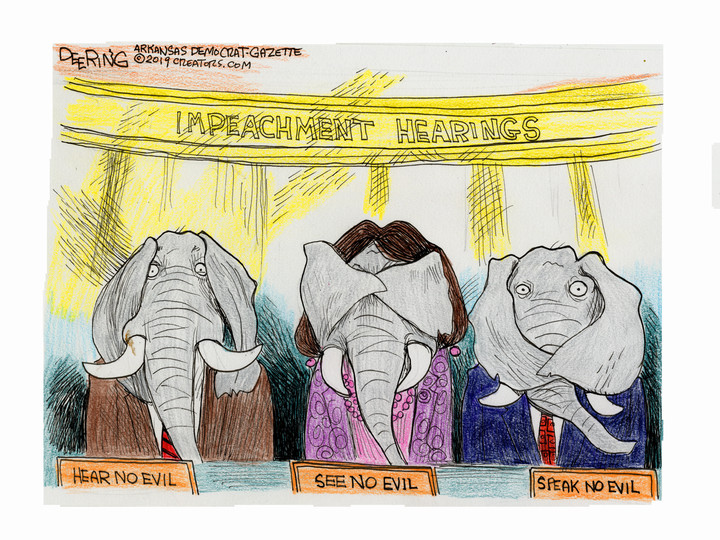 DEERING
ARKANSAS DEMOCRAT-GAZETTE
©2019 CREATORS.COM
IMPEACHMENT HEARINGS
HEAR NO EVIL
SEE NO EVIL
SPEAK NO EVIL